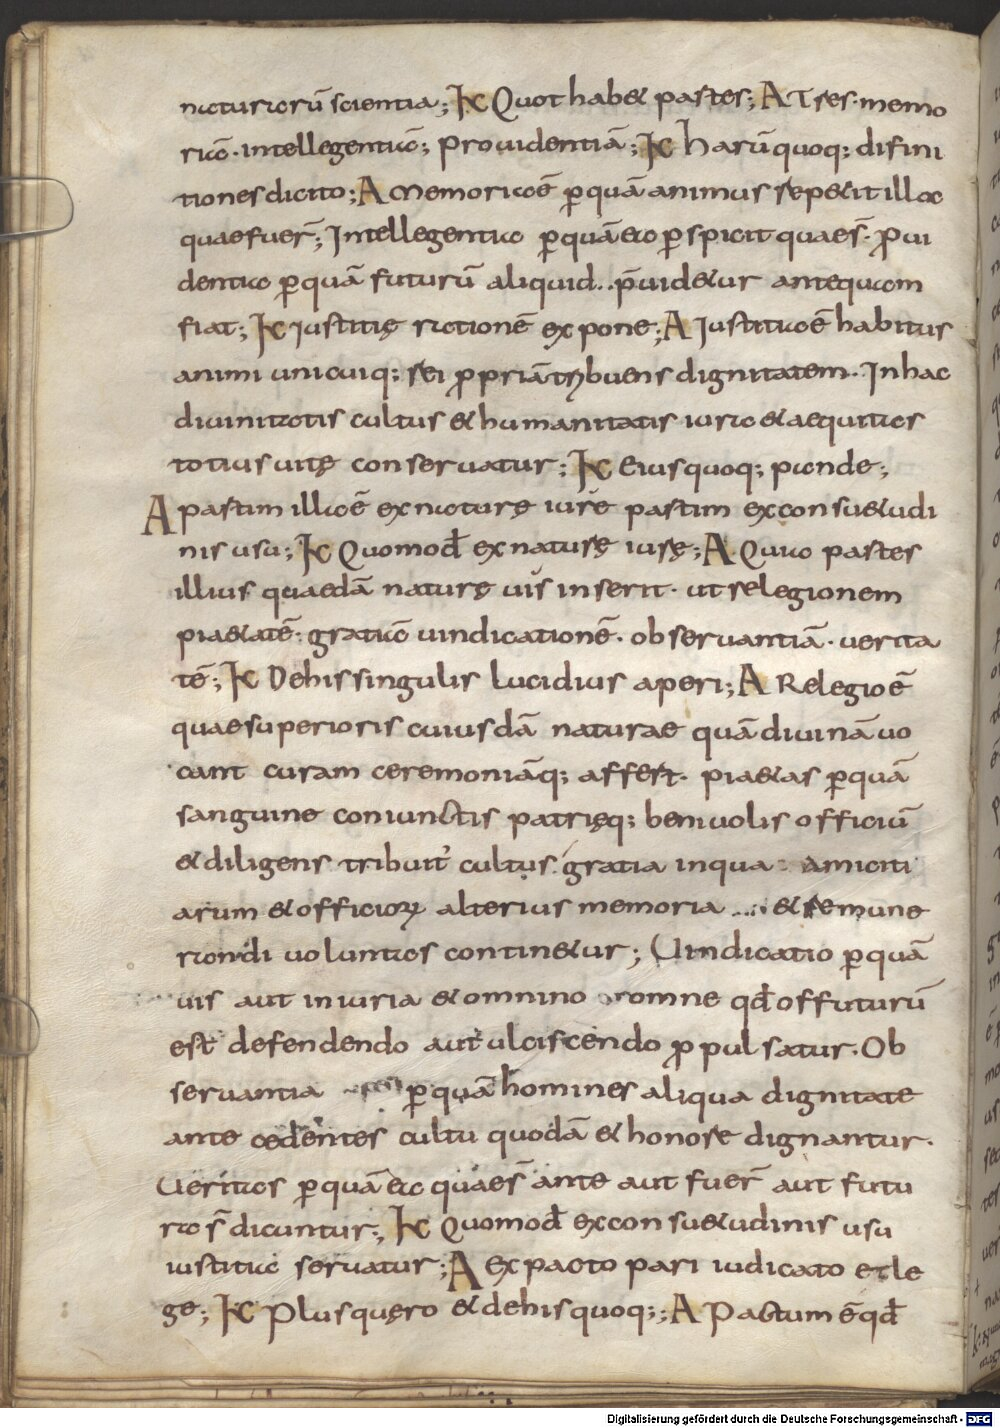 naturarū scientia; K Quot habet partes; A Tres· memo
riā· intellegentiā; prouidentiā; K harū quoq; difini
tiones dicito; A Memoria ē p quā animus repetit illa
quae fuer̄; Intellegentia p quā ea pspicit quae s̄· Proui
dentia p quā futurū aliquid.. p̄uidetur antequam
fiat; K iustitię rationē expone; A Iustitia ē habitus
animi unicuiq; rei propriā tribuens dignitatem. In hac
diuinitatis cultus & humanitatis iura & aequitas
totius uitę conseruatur; K Eius quoq; pande;
A partim illa ē ex naturę iure partim ex consuetudi
nis usu; K Quomod̄ ex naturę iure; A Quia partes
illius quaedā naturę uis inserit· ut relegionem
pietatē· gratiā uindicationē· obseruantiā· uerita
tē; K De his singulis lucidius aperi; A Relegio ē
quae superioris cuiusdā naturae quā diuinā uo
cant curam ceremoniāq; affert· pietas p quā
sanguine coniunctis patrięq; beniuolis officiū
& diligens tribuit cultus· gratia in qua amiciti
arum & officiorum alterius memoria & remune
randi uoluntas continetur; Uindicatio p quā
uis aut iniuria & omnino omne qđ offuturū
est defendendo aut ulciscendo propulsatur· Ob
seruantia p quā homines aliqua dignitate
antecedentes cultu quodā & honore dignantur·
Ueritas p quā ea quae s̄ ante aut fuer̄ aut futu
ra s̄ dicuntur; K Quomod̄ ex consuetudinis usu
iustitia seruatur; A ex pacto pari iudicato et le
ge; K Plus quęro & de his quoq;; A Pactum ē qđ
Digitalisierung gefördert durch die Deutsche Forschungsgemeinschaft - DFG